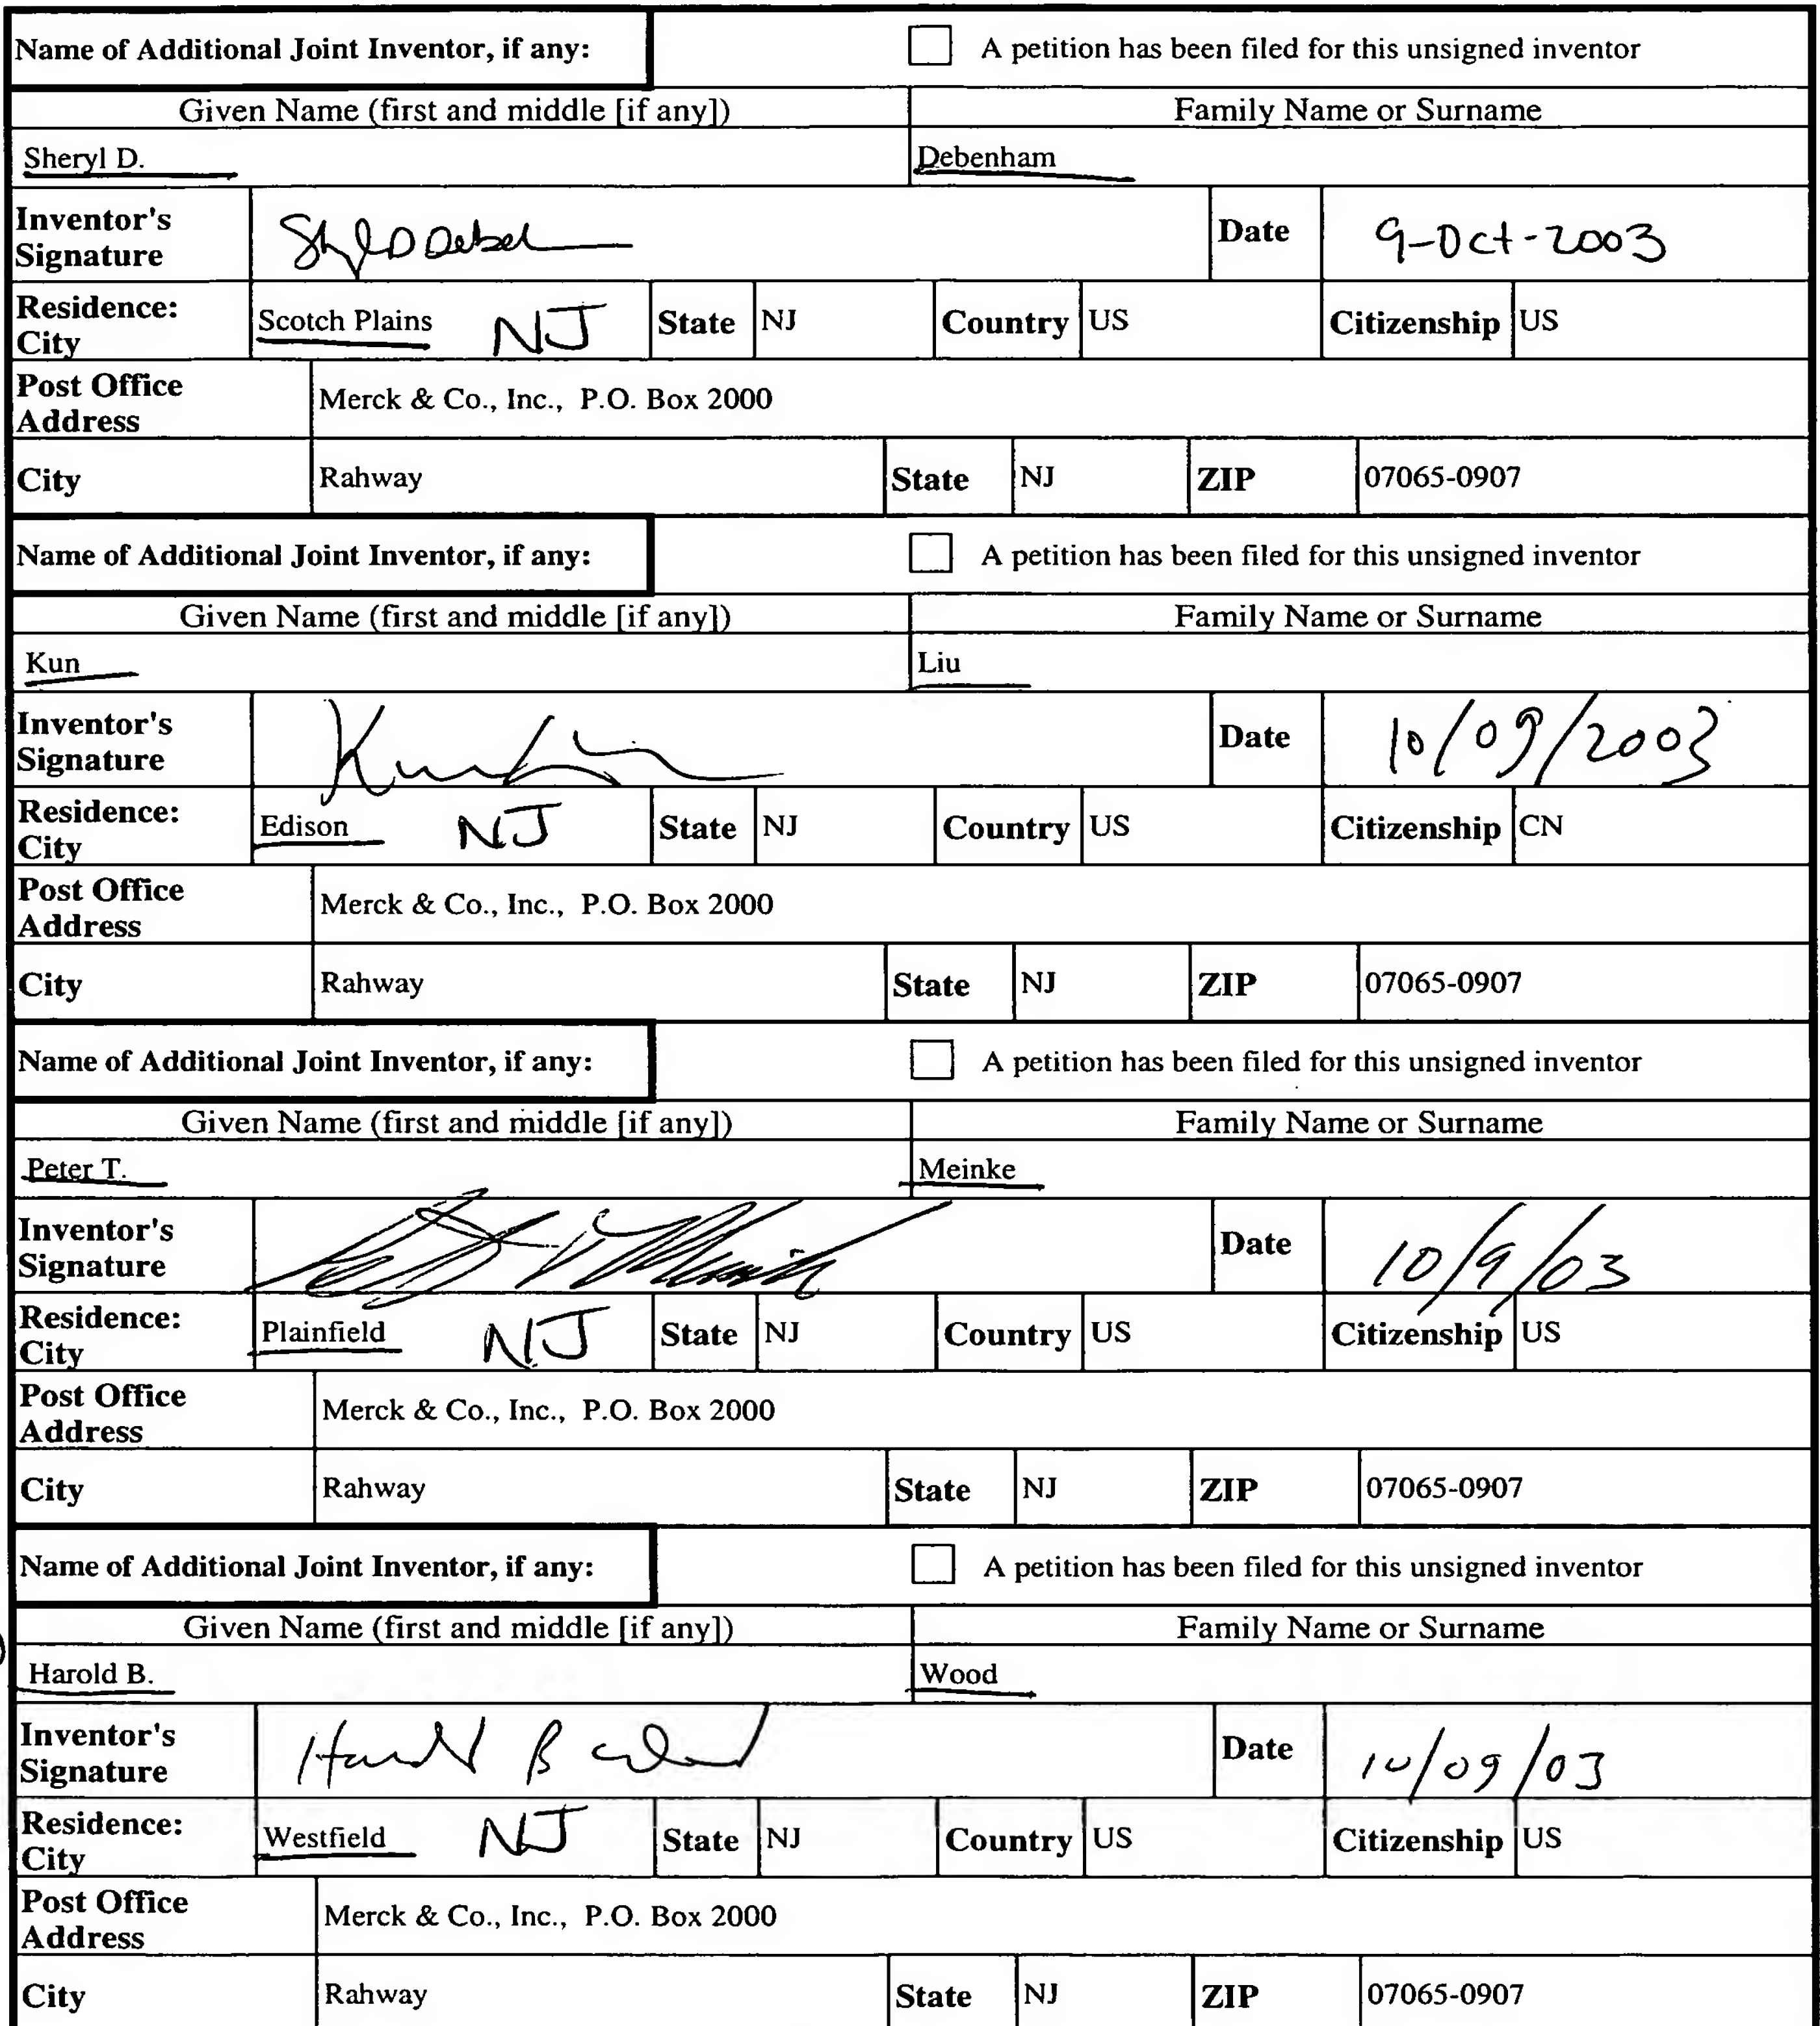 Name of Additional Joint Inventor, if any: A petition has been filed for this unsigned inventor
Given Name (first and middle [if any]) Family Name or Surname
Sheryl D. Debenham
Inventor's Signature Date 9-Oct-2003
Residence: City Scotch Plains NJ State NJ Country US Citizenship US
Post Office Address Merck & Co., Inc., P.O. Box 2000
City Rahway State NJ ZIP 07065-0907
Name of Additional Joint Inventor, if any: A petition has been filed for this unsigned inventor
Given Name (first and middle [if any]) Family Name or Surname
Kun Liu
Inventor's Signature Date 10/09/2003
Residence: City Edison NJ State NJ Country US Citizenship CN
Post Office Address Merck & Co., Inc., P.O. Box 2000
City Rahway State NJ ZIP 07065-0907
Name of Additional Joint Inventor, if any: A petition has been filed for this unsigned inventor
Given Name (first and middle [if any]) Family Name or Surname
Peter T. Meinke
Inventor's Signature Date 10/9/03
Residence: City Plainfield NJ State NJ Country US Citizenship US
Post Office Address Merck & Co., Inc., P.O. Box 2000
City Rahway State NJ ZIP 07065-0907
Name of Additional Joint Inventor, if any: A petition has been filed for this unsigned inventor
Given Name (first and middle [if any]) Family Name or Surname
Harold B. Wood
Inventor's Signature Date 10/09/03
Residence: City Westfield NJ State NJ Country US Citizenship US
Post Office Address Merck & Co., Inc., P.O. Box 2000
City Rahway State NJ ZIP 07065-0907